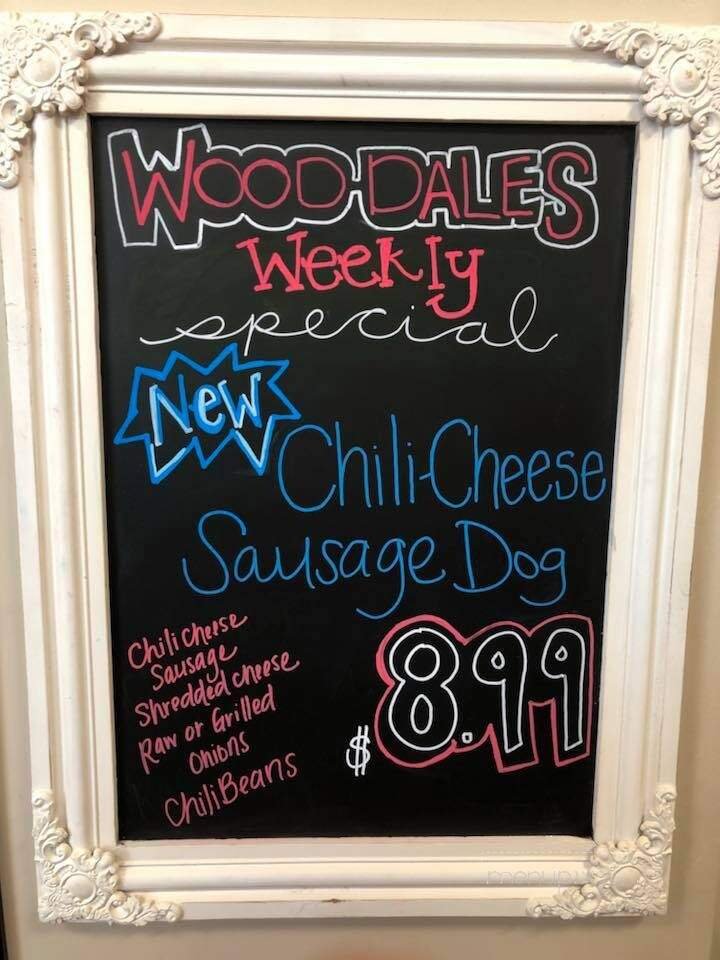 WOOD-DALES
Weekly
special
New
Chili-Cheese
Sausage Dog
Chili Cheese
Sausage
Shredded cheese
Raw or Grilled
Onions
Chili Beans
$8.99